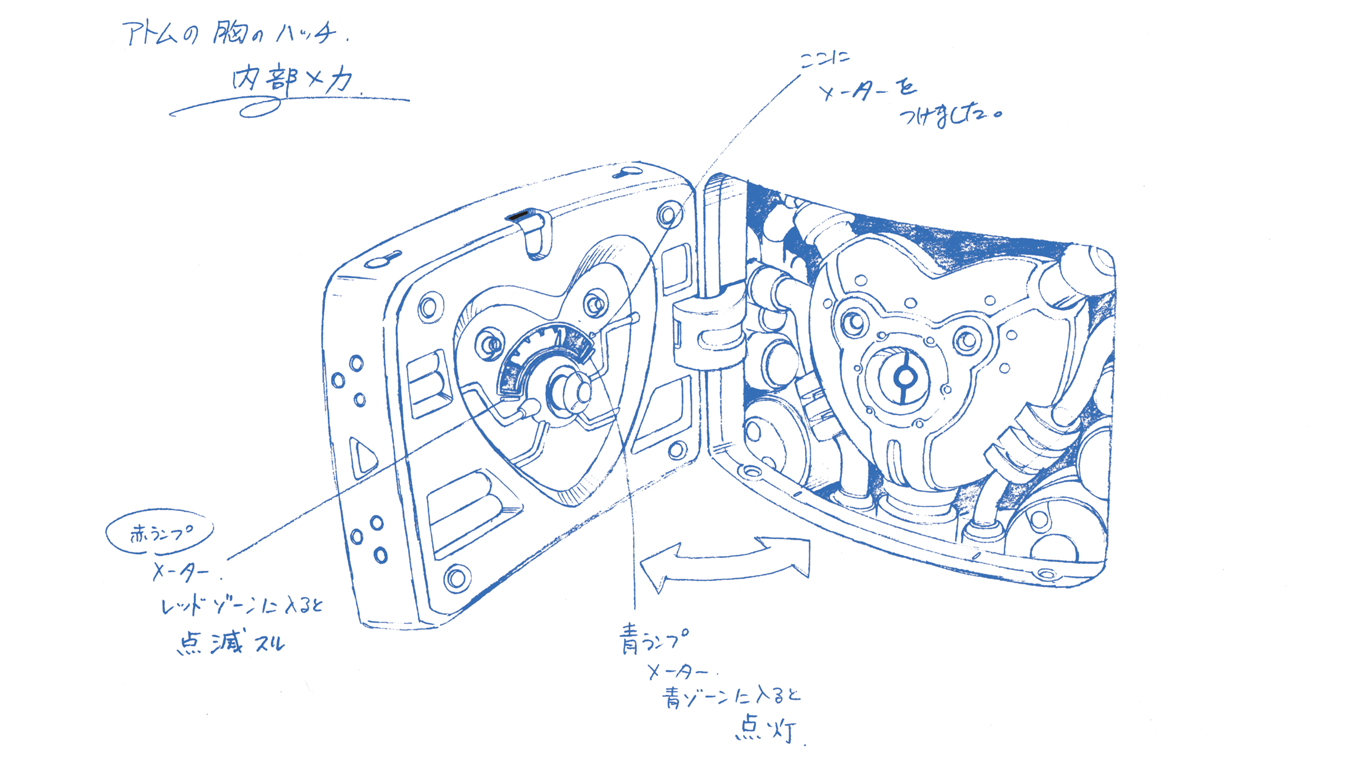 アトムの胸のハッチ.
内部メカ.
ここに
メーターを
つけました。
赤ランプ
メーター.
レッドゾーンに入ると
点滅スル
青ランプ
メーター.
青ゾーンに入ると
点灯.